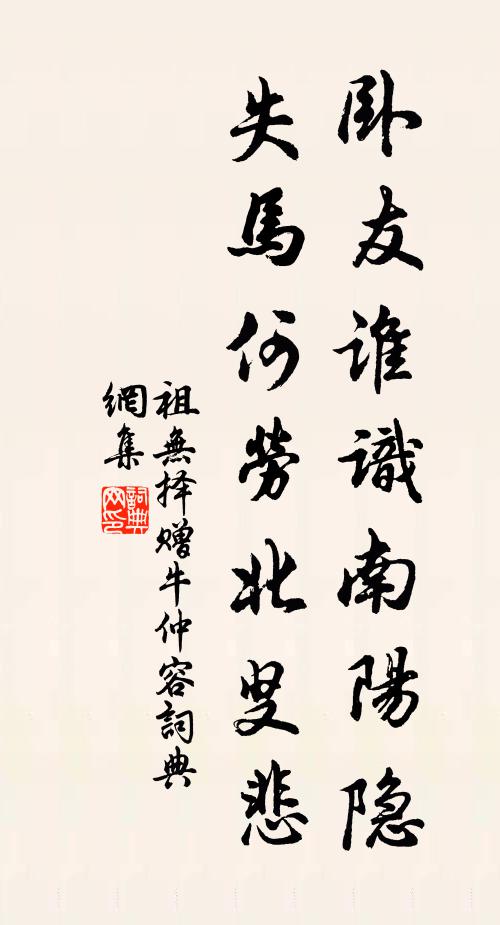 卧友谁識南陽隐
失馬何勞北叟悲
祖無择赠牛仲容詞典
網集
詞典网印